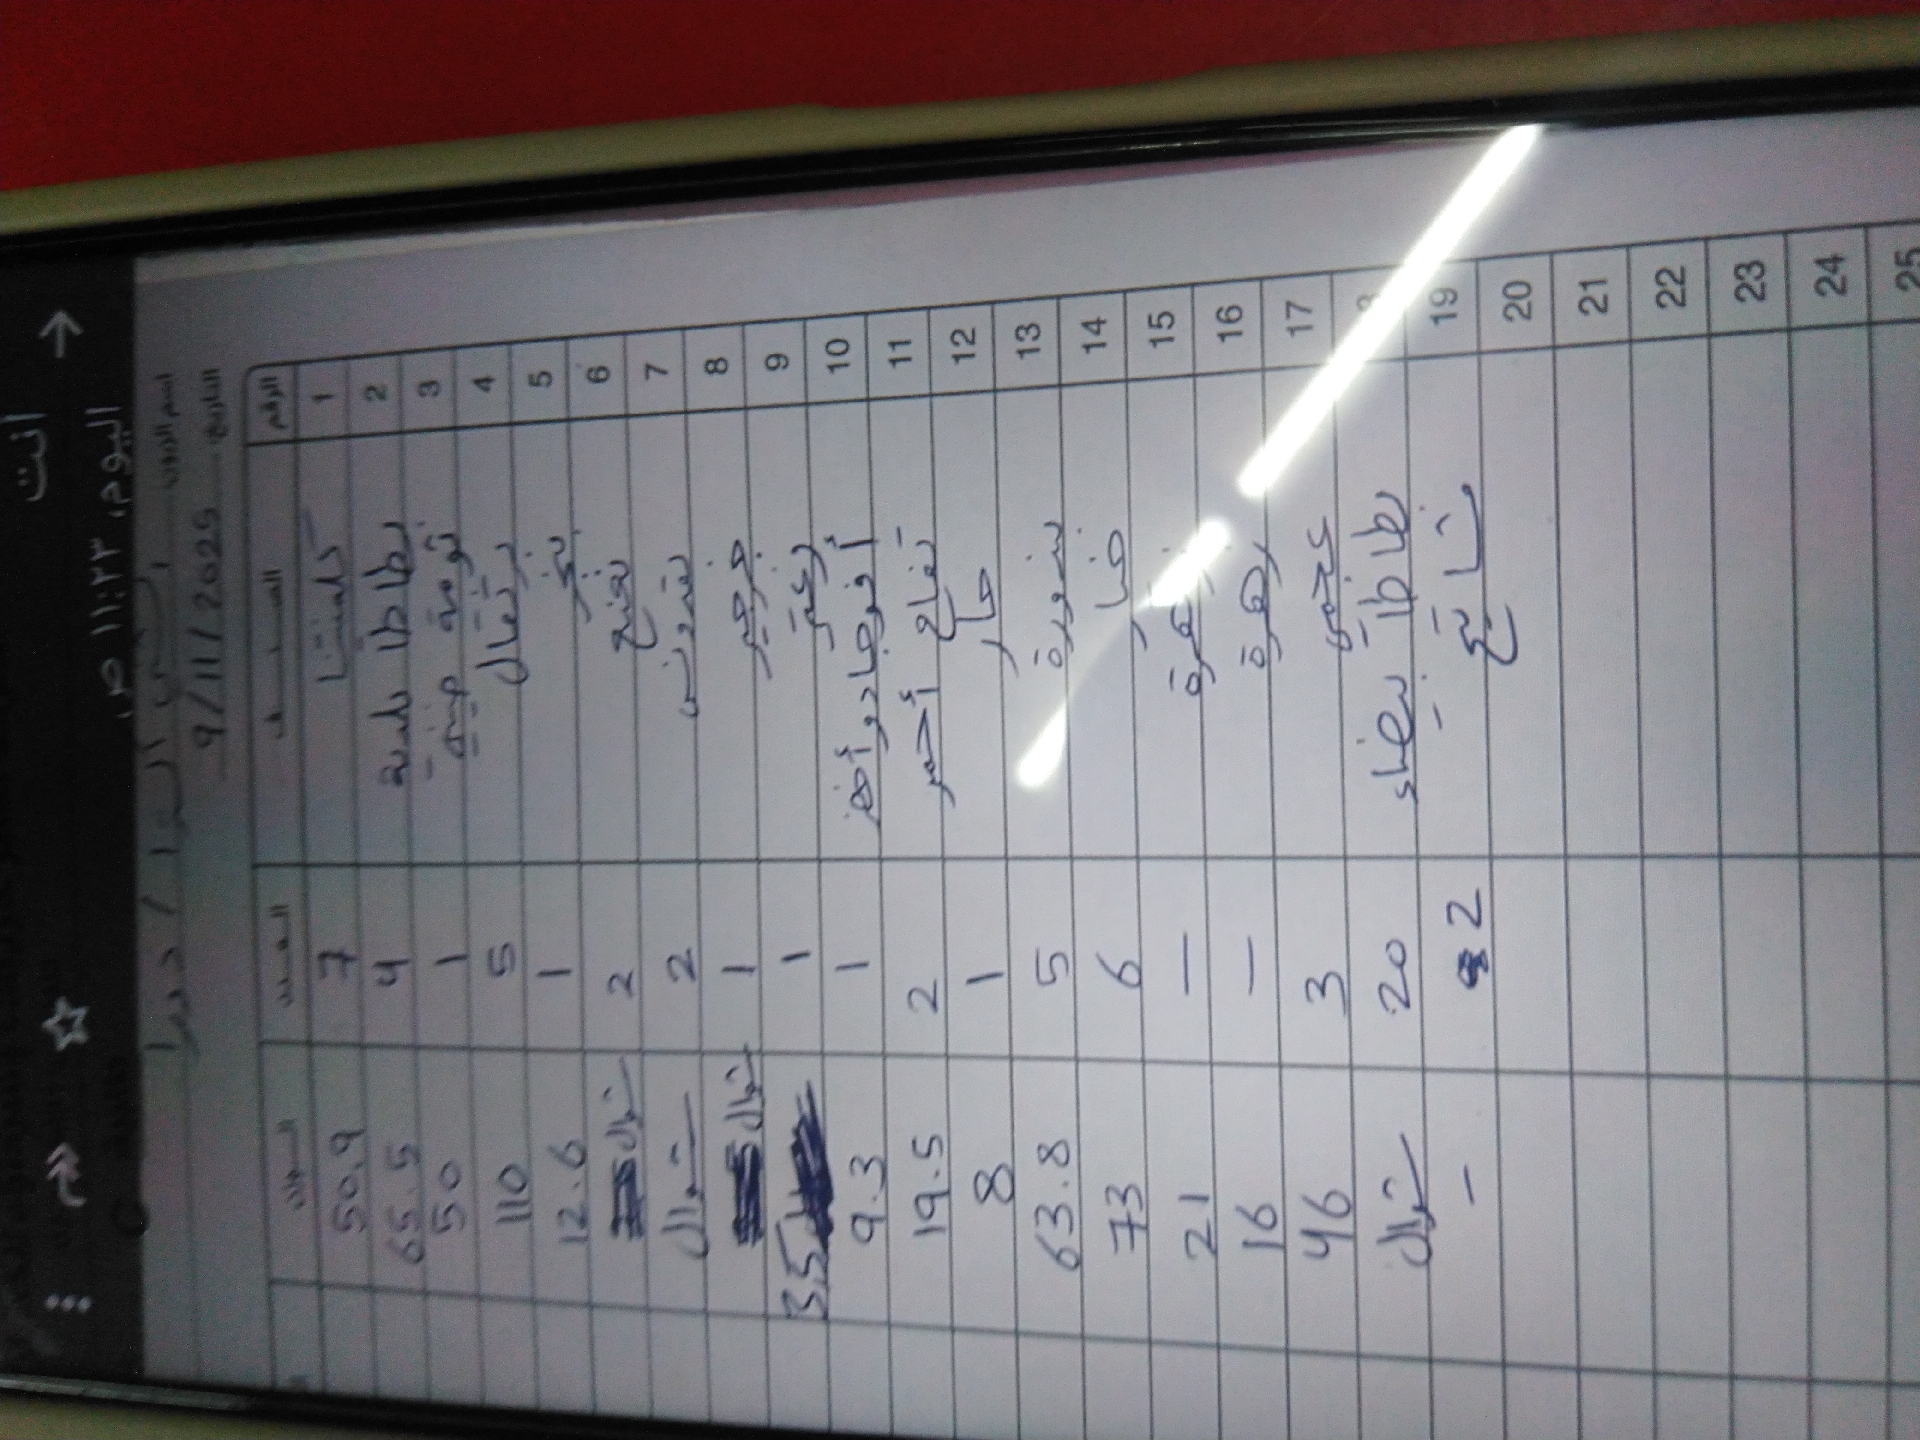 أنت
اليوم، ١١:٢٣ ص
اسم الزبون:
التاريخ: 9/11/2025
الرقم الصنف العدد الوزن
1 كلمنتينا 7 50.9
2 بطاطا 4 65.5
3 ثومة 1 50
4 برتقال 5 110
5 1 12.6
6 نعنع 2 شوال
7 بقدونس 2 شوال
8 جرجير 1 شوال
9 زعتر 1 3.5
10 أفوجادو أخضر 1 9.3
11 تفاح أحمر 2 19.5
12 حار 1 8
13 بندورة 5 63.8
14 خيار 6 73
15 — 21
16 زهرة — 16
17 عجمي 3 46
بطاطا بيضاء 20 شوال
19 2 -
20
21
22
23
24
25